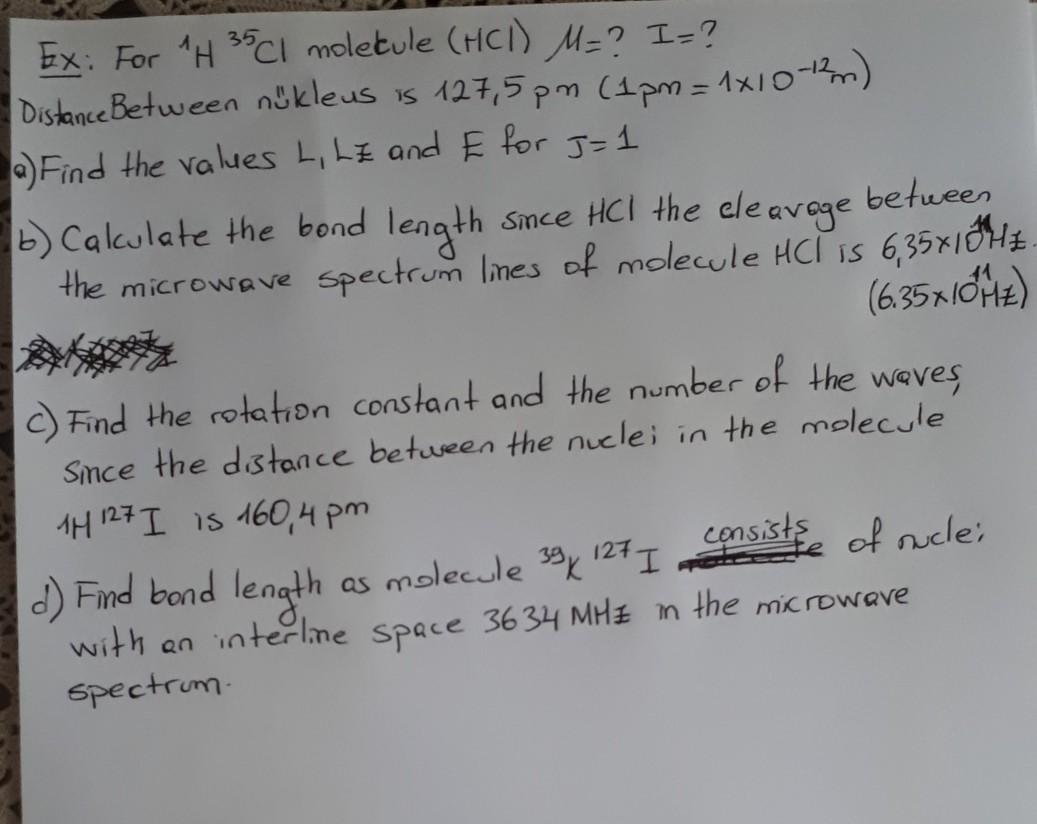 Ex: For ¹H ³⁵Cl molekule (HCl) M=? I=?
Distance Between nükleus is 127,5 pm (1pm = 1x10⁻¹²m)
a) Find the values L, Lz and E for J=1
b) Calculate the bond length since HCl the cleavage between
the microwave spectrum lines of molecule HCl is 6,35x10¹¹Hz.
(6.35x10¹¹Hz)
c) Find the rotation constant and the number of the waves,
Since the distance between the nuclei in the molecule
1H ¹²⁷I is 160,4 pm
d) Find bond length as molecule ³⁹K ¹²⁷I consists of nuclei
with an interline space 3634 MHz in the microwave
spectrum.